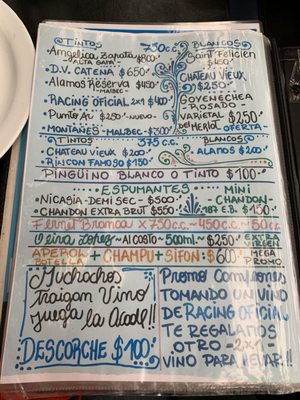 TINTOS 750 c.c. BLANCOS
• Angelica Zapata $800
ALTA GAMA
Saint Felicien
$450
• D.V. CATENA $650
CHATEAU VIEUX
$250
• Alamos Reserva $450
- MALBEC -
GOYENECHEA
- ROSADO -
• RACING OFICIAL 2x1 $400
VARIETAL $250
• Punto Az $250 - NUEVO -
MERLOT OFERTA
• MONTAÑES - MALBEC - $300
TINTOS 375 c.c. BLANCOS
• CHATEAU VIEUX $200
• ALAMOS $200
• RINCON FAMOSO $150
PINGÜINO BLANCO O TINTO $100
ESPUMANTES MINI
• NICASIA - DEMI SEC - $500
- CHANDON -
• CHANDON EXTRA BRUT $550
187 E.B. $150
Fernet Bramca x 750 c.c. ~ 450 c.c. ~ 50 c.c.
Oliva Lopez ~ AL COSTO ~ 500ml. ~ $250 VIRGEN
APEROL BOTELLA + CHAMPU + SIFON: $600 MEGA PROMO
Muchachos
traigan Vino
juega la Acadé!!
DESCORCHE $100
Promo Campeones
TOMANDO UN VINO
DE RACING OFICIAL
TE REGALAMOS
OTRO - 2x1 -
VINO PARA LLEVAR!!